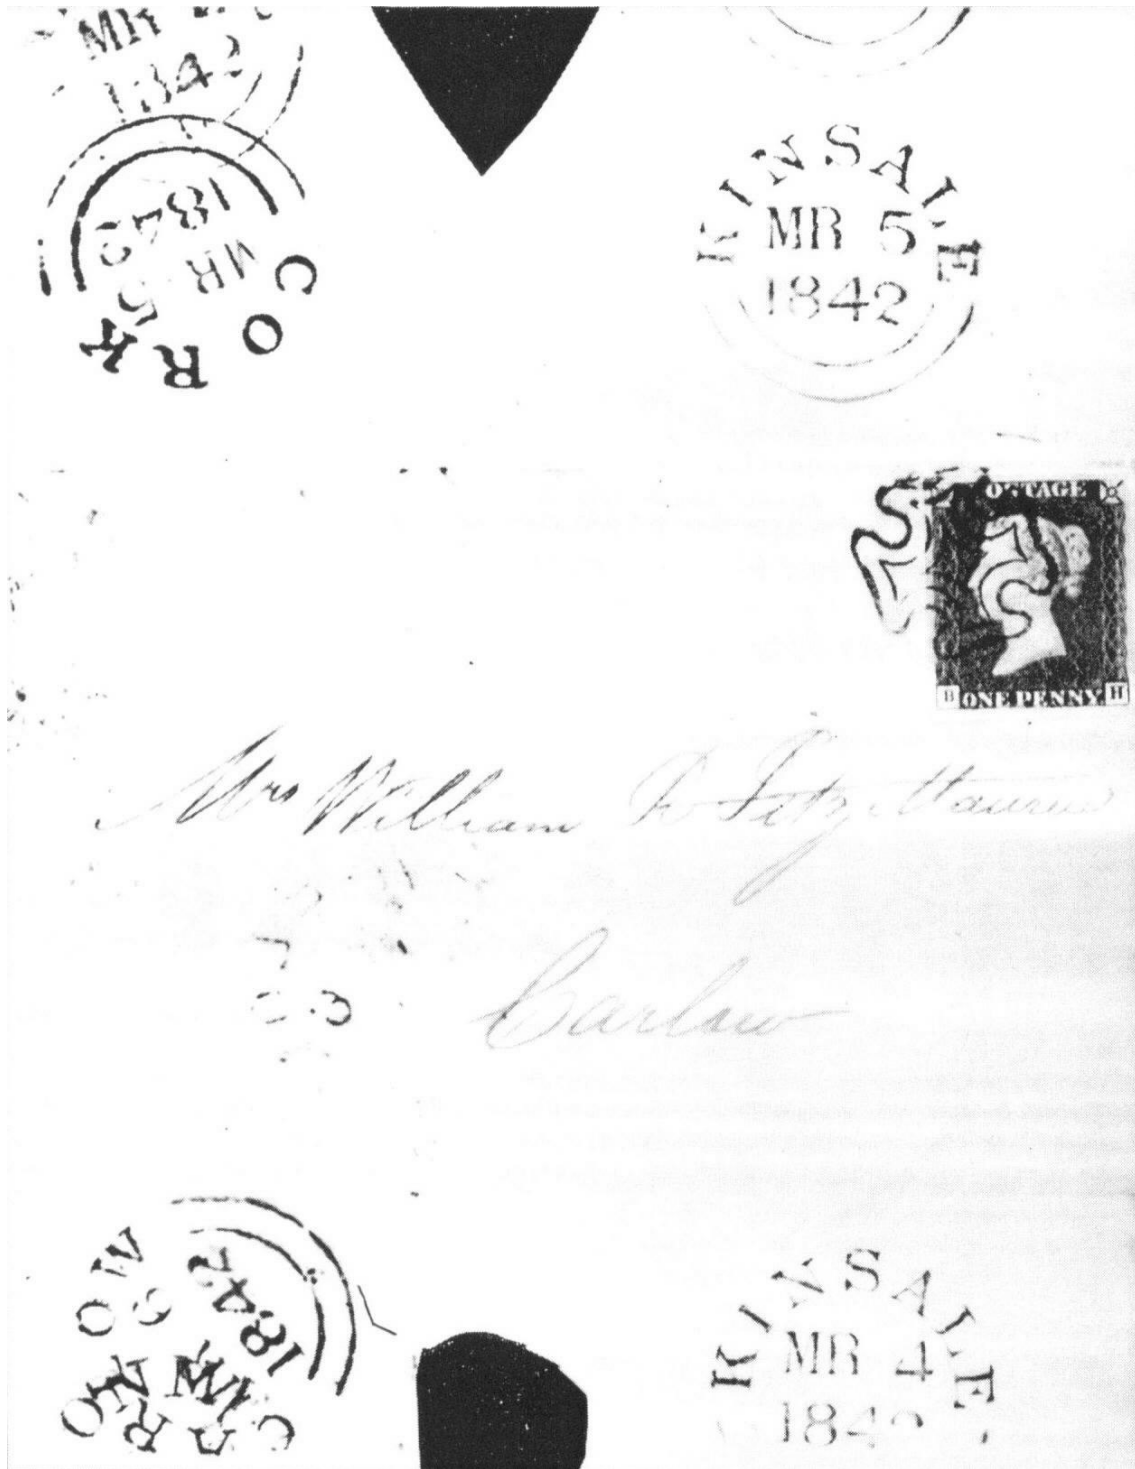 MR
1842
CORK
MR 5
1842
KINSALE
MR 5
1842
POSTAGE
B ONE PENNY H
Mrs William R FitzMaurice
Carlow
CARLOW
1842
KINSALE
MR 4
1842